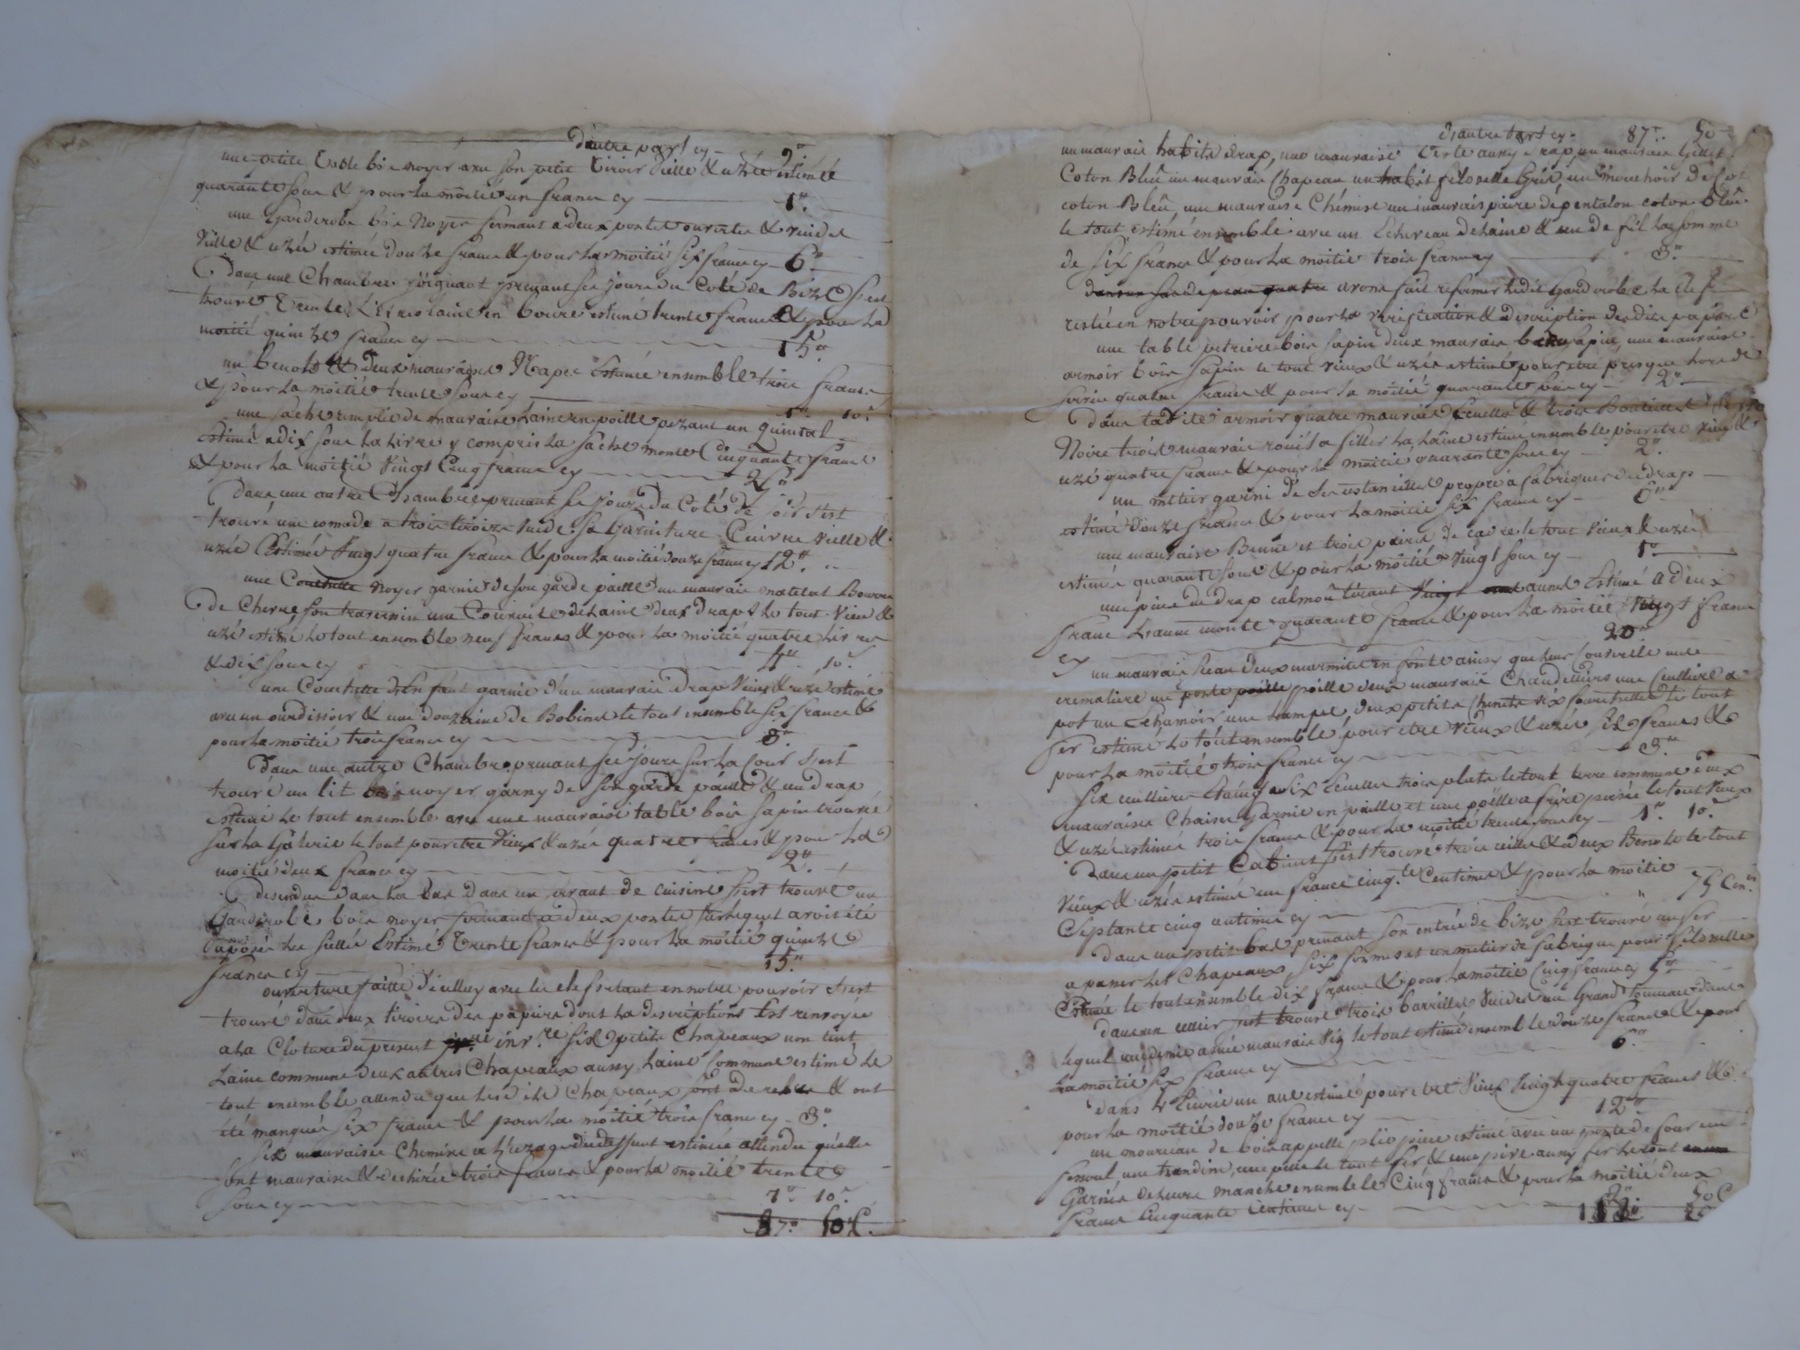 D'autre part cy — 9"
une petite table bois noyer avec son petit tiroir vielle & uzée estimée
quarante sous & pour la moitié un franc cy 1"
une Garderobe bois Noyer fermant a deux portes ouverte & vuide
vielle & uzée estimée douze francs & pour la moitié six francs cy 6"
Dans une Chambre joignant prenant ses jours du Coté de Bize s'est
trouvé trente Livres laine en bourre estimé trente francs & pour la
moitié quinze francs cy 15"
un & deux mauvaises Napes estimée ensemble trois francs
& pour la moitié trente sous cy 1" 10"
une sache remplie de mauvaise Laine en poille pezant un quintal
estimé a dix sous la Livre y compris la sache monte Cinquante francs
& pour la moitié vingt Cinq francs cy 25"
Dans une autre Chambre prenant ses jours du Coté de s'est
trouvé une comode a trois tiroirs vuide sa Garniture Cuivre vielle &
uzée Estimée vingt quatre francs & pour la moitié douze francs cy 12"
une Couchette noyer garnie de son garde paille un mauvais matelat Bourre
De Chevre, son traversin une Couverte de Laine deux draps le tout vieux &
uzé estimé le tout ensemble neuf francs & pour la moitié quatre Livres
& dix sous cy 4" 10"
une Couchette d'Enfant garnie d'un mauvais drap vieux & uzé estimé
avec un ourdissoir & une douzaine de Bobines le tout ensemble six francs &
pour la moitié trois francs cy 3"
Dans une autre Chambre prenant ses jours sur la Cour s'est
trouvé un lit bois noyer garny de son garde paille & un drap
estimé le tout ensemble avec une mauvaise table bois sapin trouvée
sur la Galerie le tout pour etre vieux & uzée quatre francs & pour la
moitié deux francs cy 2"
Descendus dans le bas dans un de cuisine s'est trouvé un
Garderobe bois noyer fermant a deux portes sur lequel avoit été
aposée les sellés Estimé trente francs & pour la moitié quinze
francs cy 15"
ouverture faitte d'icelluy avec les clefs etant en notre pouvoir s'est
trouvé dans deux tiroirs des papiers dont la description est renvoyée
a la Cloture du present inv.re six petits Chapeaux non teint
Laine commune deux autres Chapeaux aussy Laine Commune estimé le
tout ensemble attendu que lesdits Chapeaux sont De rebut & ont
été manqués six francs & pour la moitié trois francs cy 3"
six mauvaises Chemises a l'uzage du deffunt estimée attendu quelles
sont mauvaises & dechirée trois francs & pour la moitié trente
sous cy 1" 10"
87" 50 C.
D'autre part cy 87" 50
un mauvais habits drap, une mauvaise veste aussy drap, un mauvais Gillet
Coton Bleû un mauvais Chapeau un habit filoselle Gris un mouchoir de Col
coton Bleû une mauvaise Chemise un mauvais paire de pentalon coton Bleû
le tout estimé ensemble avec un Echeveau de Laine & un de fil la somme
de six francs & pour la moitié trois francs cy 3"
avons fait refermer ledit Garderobe la clef
restée en notre pouvoir pour la verification & description desdits papiers
une table petriere bois sapin deux mauvais bancs sapin, une mauvaise
armoir bois sapin le tout vieux & uzée estimé pour etre presque hors de
service quatre francs & pour la moitié quarante sous cy 2"
Dans ladite armoir quatre mauvaises Ecuelles & trois Bouteilles verre
Noire trois mauvais rouets a filler la laine estimé ensemble pour etre vieux &
uzé quatre francs & pour la moitié quarante sous cy 2"
un metier garni de ses ustancilles propre a fabriquer des draps
estimé douze francs & pour la moitié six francs cy 6"
une mauvaise Benne et trois paires de le tout vieux & uzé
estimée quarante sous & pour la moitié vingt sous cy 1"
une piece de drap calmou tirant vingt aunes Estimé a deux
francs Laune monte quarante francs & pour la moitié vingt francs
cy 20"
un mauvais seau deux marmites en fonte ainsy que leur Couvercle une
cremaliere une poille deux mauvais Chandelliers une Cuilliere a
pot un une Lampe, deux petits six fourchettes le tout
fer estimé le tout ensemble pour etre vieux & uzée six francs &
pour la moitié trois francs cy 3"
six cuilliers Etaing six Ecuelles trois plats le tout terre commune deux
mauvaises Chaises garnie en paille et une poëlle a frire percée le tout vieux
& uzé estimée trois francs & pour la moitié trente sous cy 1" 10"
Dans un petit Cabinet s'est trouvé trois & deux le tout
vieux & uzée estimé un franc cinq.te Centimes & pour la moitié
Septante cinq centimes cy 75 Cen.
Dans un petit bas prenant son entrée de bize s'est trouvé un fer
a paner les Chapeaux six formes et un metier de fabrique pour filoselle
Estimé le tout ensemble dix francs & pour la moitié Cinq francs cy 5"
dans un cellier s'est trouvé trois barrilles vuides un Grand Tonneau dans
lequel mauvais vin le tout estimé ensemble douze francs & pour
la moitié six francs cy 6"
dans L'Ecurie un ane estimé pour etre vieux vingt quatre francs &
pour la moitié douze francs cy 12"
un mourceau de bois appellé estimé avec une porte de four une
une le tout fer & une aussy fer le tout
Garnie de leurs manche ensemble Cinq francs & pour la moitié deux
francs Cinquante Centimes cy 2" 50 C